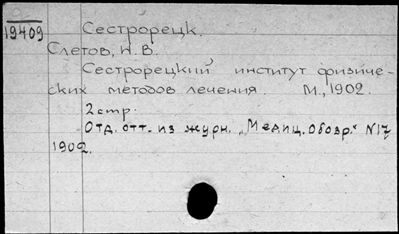 19409
Сестрорецк.
Слетов, Н. В.
Сестрорецкий институт физиче-
ских методов лечения. М., 1902.
2 стр.
Отд. отт. из журн. „Медиц. Обозр.“ N17
1902.